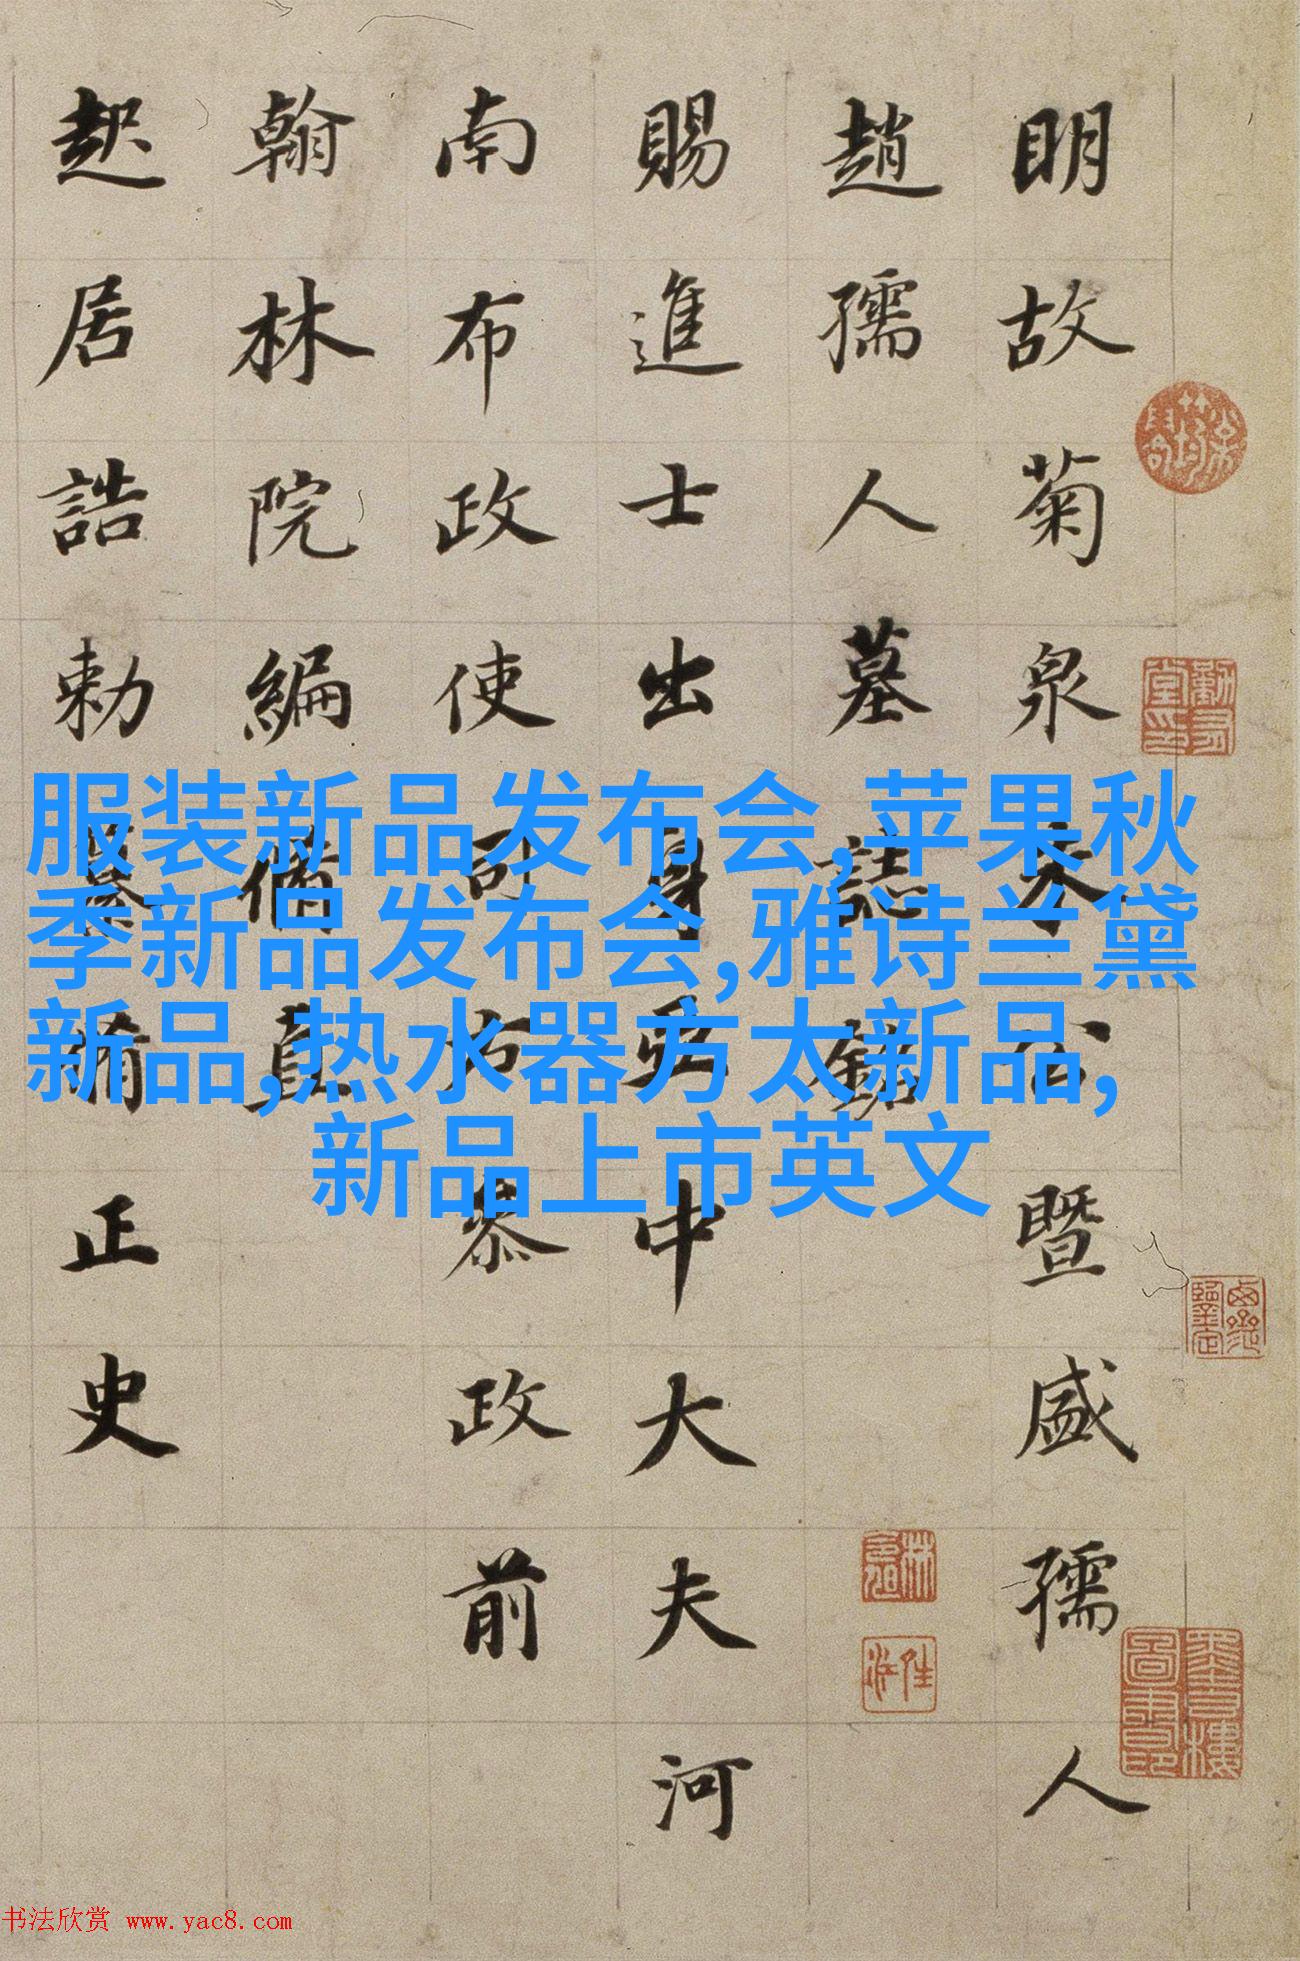 明故菊泉公暨盛孺人
趙孺人墓誌銘
賜進士出身亞中大夫河
南布政使司右叅政前
翰林院編脩直
起居誥勅纂脩正史
服装新品发布会,苹果秋
季新品发布会,雅诗兰黛
新品,热水器方太新品,
新品上市英文
书法欣赏 www.yac8.com